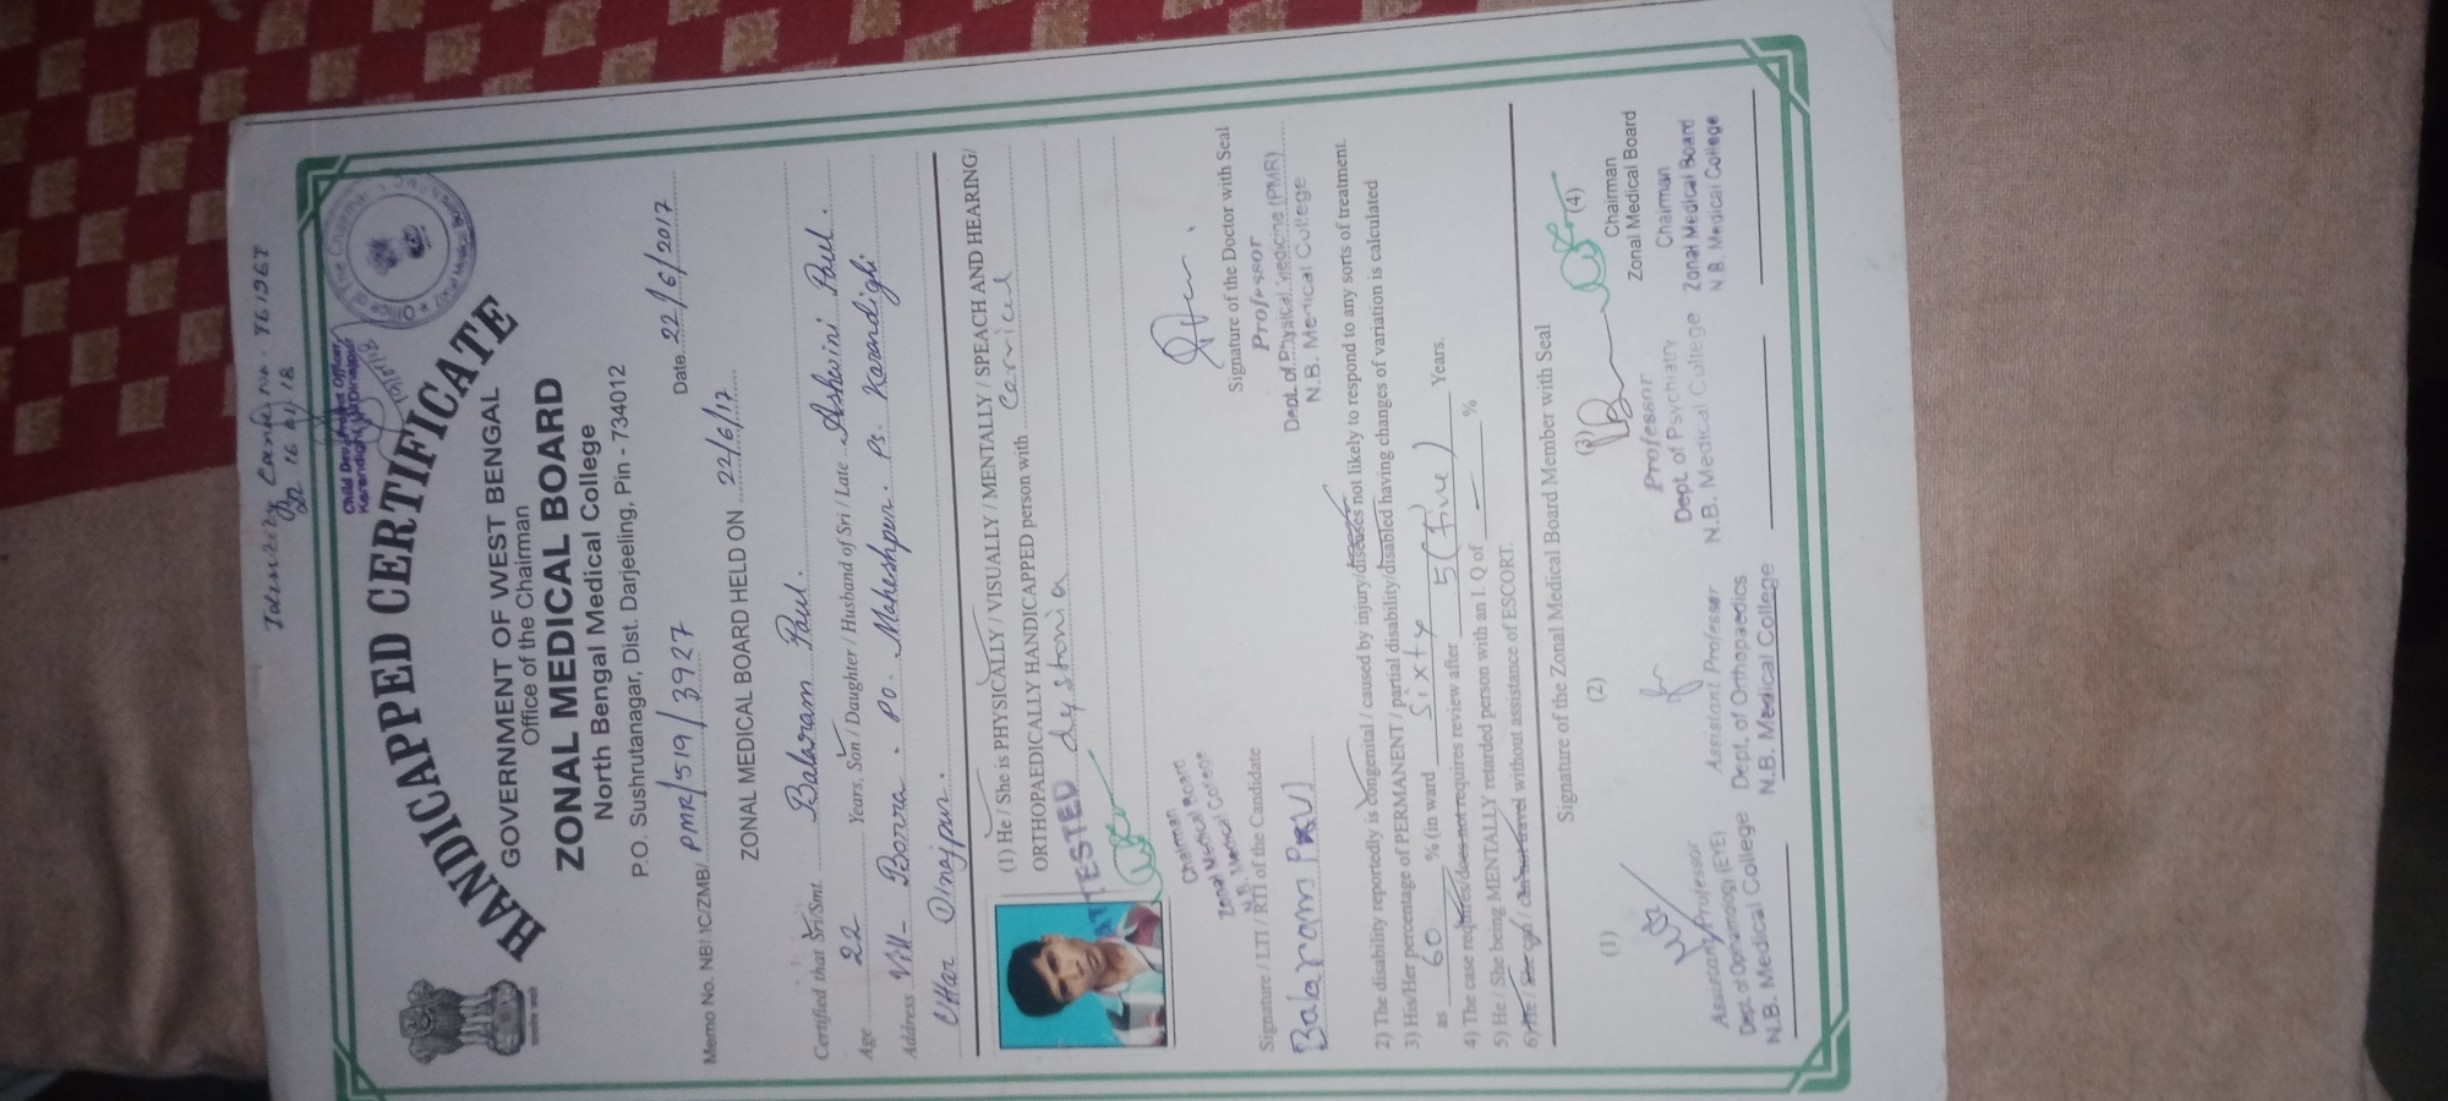 Identity Card No - 761967
Dt. 16.01.18
Child Dev. Project Officer
Karandighi, U/Dinajpur
HANDICAPPED CERTIFICATE
GOVERNMENT OF WEST BENGAL
Office of the Chairman
ZONAL MEDICAL BOARD
North Bengal Medical College
P.O. Sushrutanagar, Dist. Darjeeling, Pin - 734012
Memo No. NBMC/ZMB/ PMR/519/3927 Date 22/6/2017
ZONAL MEDICAL BOARD HELD ON 22/6/17
Certified that Sri/Smt. Balaram Paul.
Age 22 Years, Son / Daughter / Husband of Sri / Late Ashwini Paul.
Address Vill- Bonra. PO. Maheshpur. Ps. Karandighi
Uttar Dinajpur.
(1) He / She is PHYSICALLY / VISUALLY / MENTALLY / SPEACH AND HEARING/
ORTHOPAEDICALLY HANDICAPPED person with Cervical
dystonia
ATTESTED
Chairman
Zonal Medical Board
N.B. Medical College
Signature of the Doctor with Seal
Professor
Dept. of Physical Medicine (PMR)
N.B. Medical College
Signature / LTI / RTI of the Candidate
Balaram Paul
2) The disability reportedly is congenital / caused by injury/diseases not likely to respond to any sorts of treatment.
3) His/Her percentage of PERMANENT / partial disability/disabled having changes of variation is calculated
as 60 % (in ward Sixty
4) The case requires/does not requires review after 5 (five) Years.
5) He / She being MENTALLY retarded person with an I. Q of — %
6) He / She can / can not travel without assistance of ESCORT.
Signature of the Zonal Medical Board Member with Seal
(1) (2) (3) (4)
Chairman
Zonal Medical Board
Assistant Professor
Dept. of Ophthalmology (EYE)
N.B. Medical College
Assistant Professor
Dept. of Orthopaedics
N.B. Medical College
Professor
Dept. of Psychiatry
N.B. Medical College
Chairman
Zonal Medical Board
N.B. Medical College